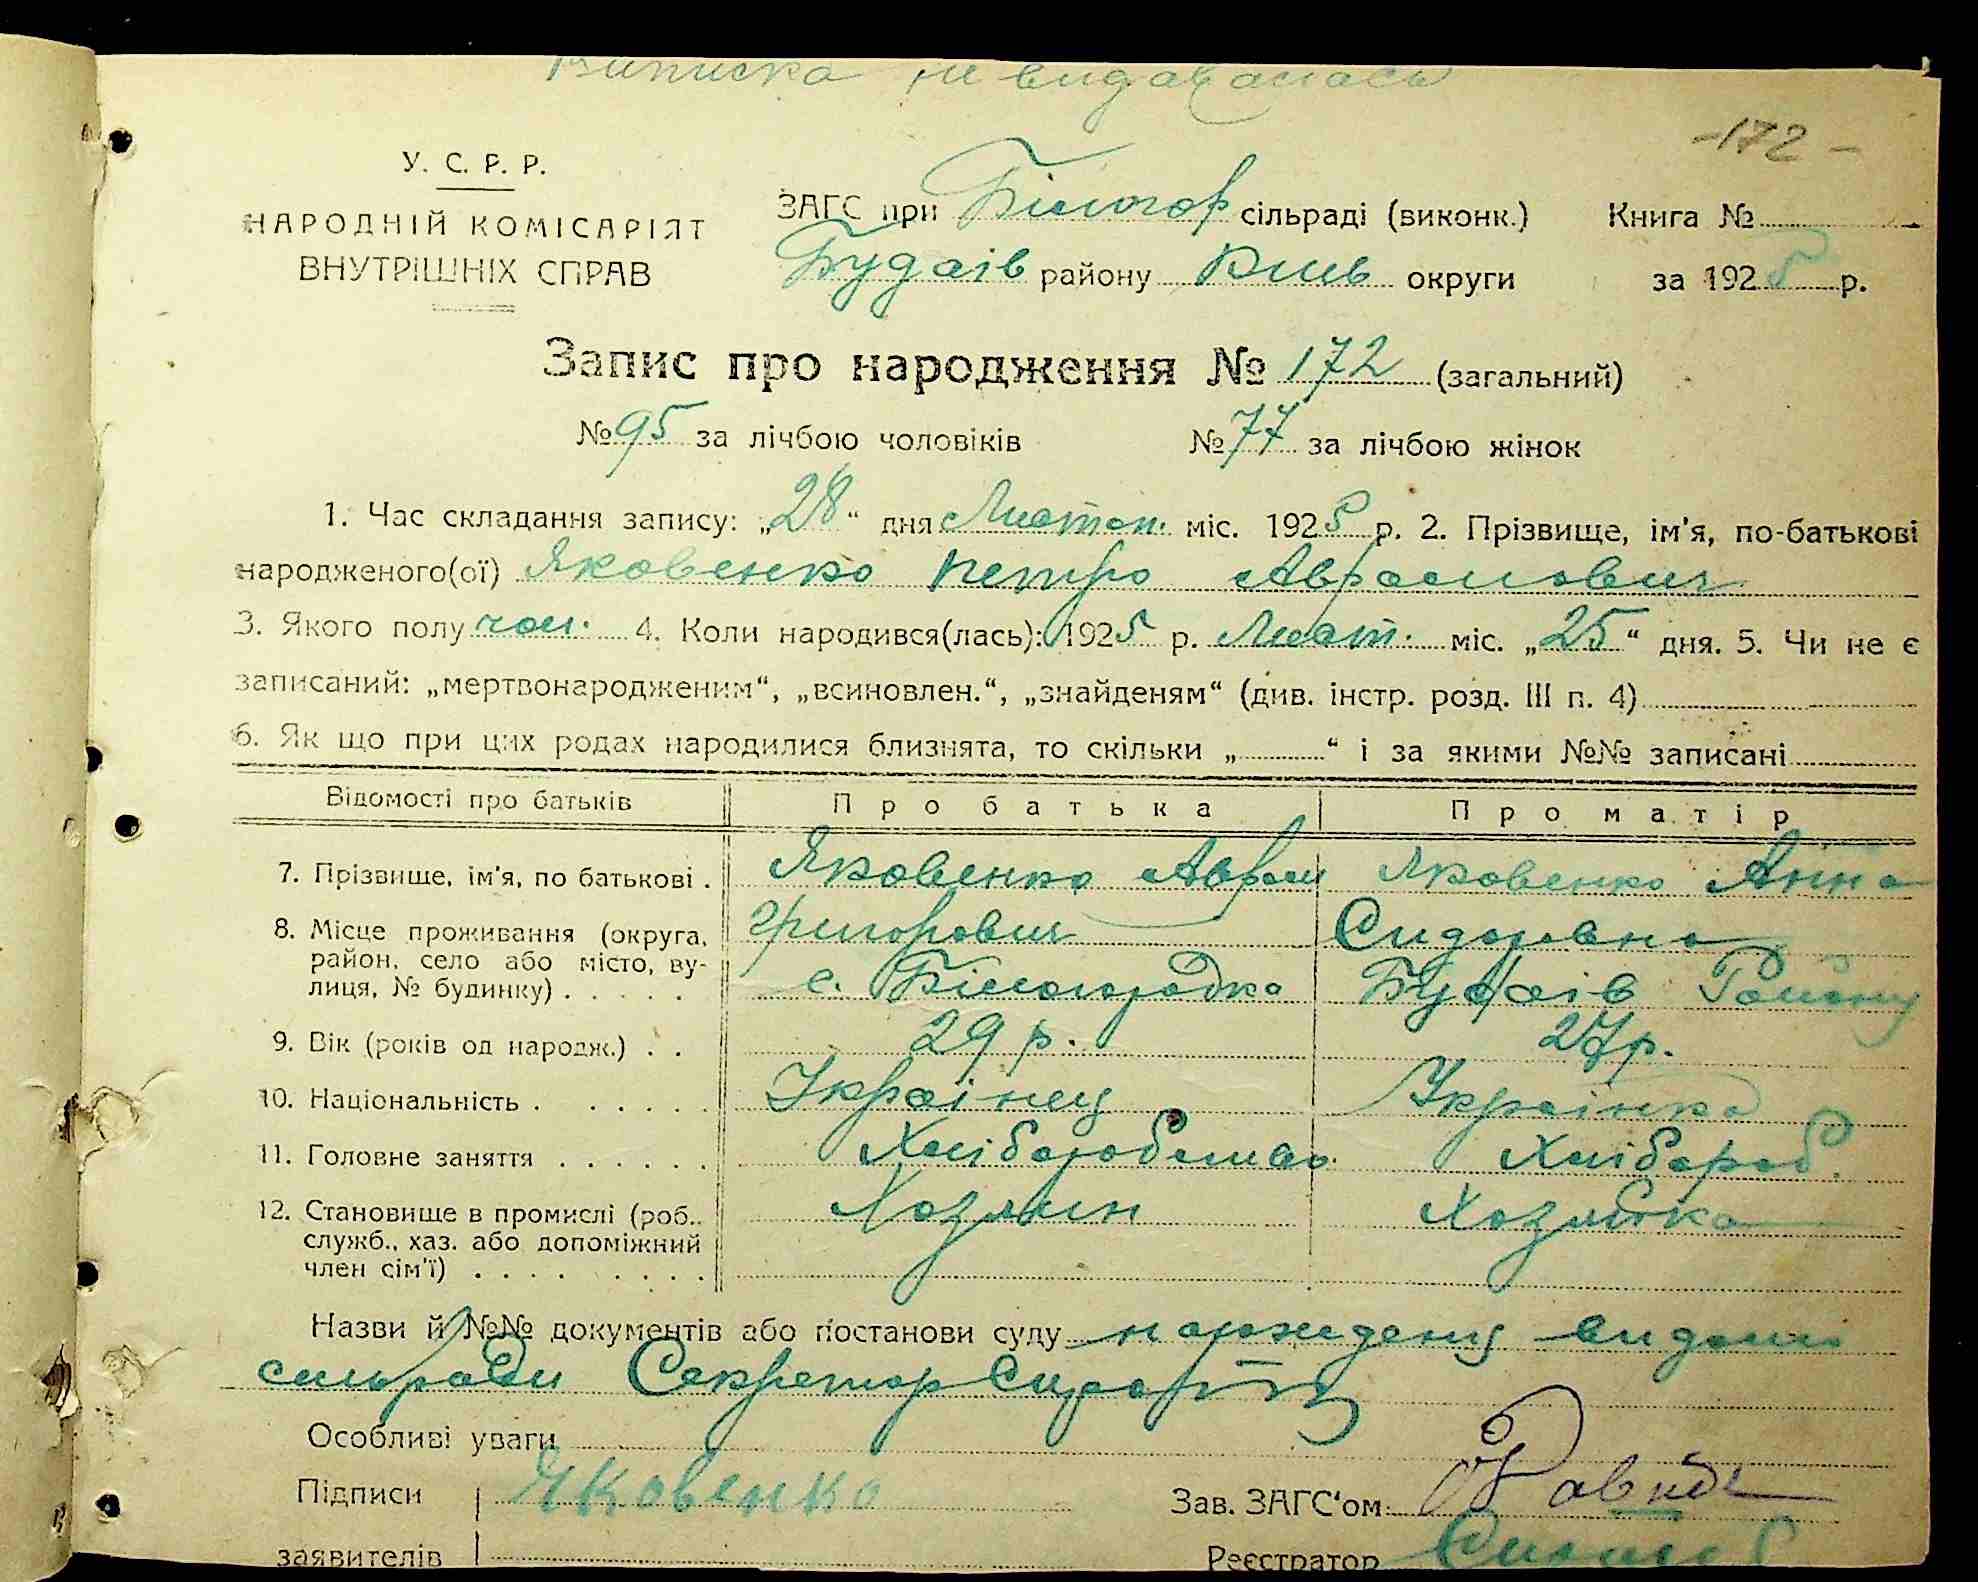 Виписка не видавалась
-172-
У. С. Р. Р.
НАРОДНІЙ КОМІСАРІЯТ
ВНУТРІШНІХ СПРАВ
ЗАГС при Білогор сільраді (виконк.) Книга №
Будаів району Київ округи за 1925 р.
Запис про народження № 172 (загальний)
№ 95 за лічбою чоловіків № 77 за лічбою жінок
1. Час складання запису: „28“ дня Листоп. міс. 1925 р. 2. Прізвище, ім'я, по-батькові
народженого(ої) Яковенко Петро Аврамович
3. Якого полу чол. 4. Коли народився(лась): 1925 р. Лист. міс. „25“ дня. 5. Чи не є
записаний: „мертвонародженим“, „всиновлен.“, „знайденям“ (див. інстр. розд. III п. 4)
6. Як що при цих родах народилися близнята, то скільки „ “ і за якими №№ записані
Відомості про батьків Про батька Про матір
7. Прізвище, ім'я, по батькові . Яковенко Аврам Яковенко Анна
8. Місце проживання (округа, Григорович Сидоровна
район, село або місто, ву-
лиця, № будинку) . . . . . с. Білогородка Будаів Району
9. Вік (років од народж.) . . 29 р. 27 р.
10. Національність . . . . . . Українец Українка
11. Головне заняття . . . . . . Хліборобство Хлібороб.
12. Становище в промислі (роб., Хозяин Хозяйка
служб., хаз. або допоміжний
член сім'ї) . . . . . . . .
Назви й №№ документів або постанови суду
сильради Секретар
Особливі уваги
Підписи Яковенко Зав. ЗАГС'ом
заявителів Реєстратор